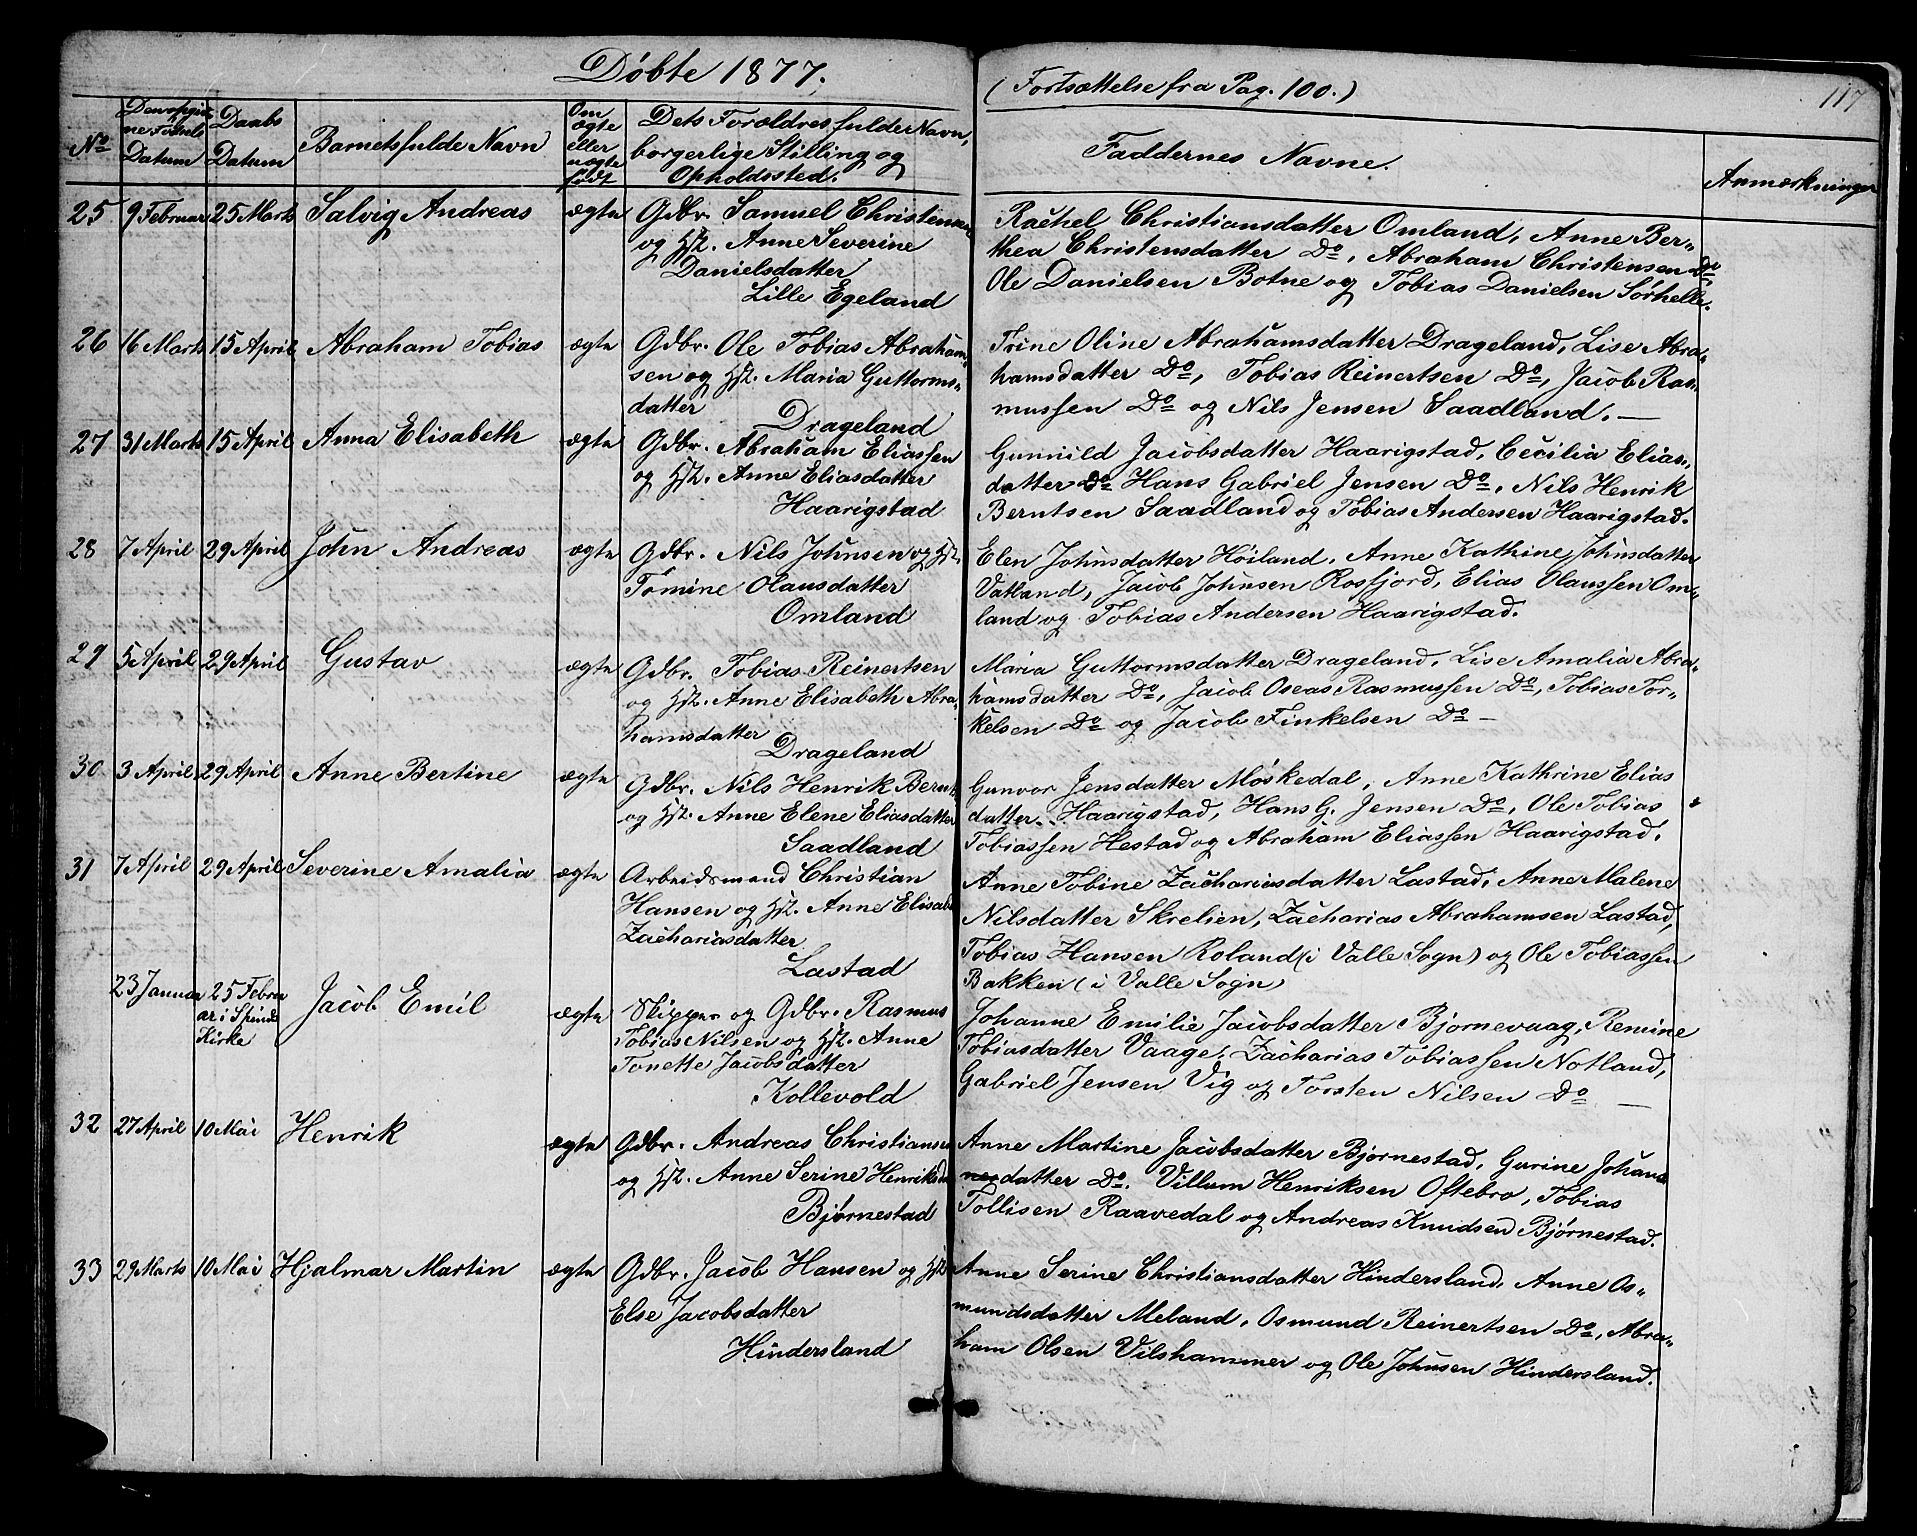 Döbte 1877.
(Fortsættelse fra Pag. 100.)
117
No
Datum
Daabs Datum
Barnets fulde Navn
Om ægte eller uægte født
Dets Forældres fulde Navn,
borgerlige Stilling og
Opholdssted.
Faddernes Navne.
Anmærkninger
25 9 Februar 25 Marts Salvig Andreas ægte Gdbr. Samuel Christensen
og Hst. Anne Severine
Danielsdatter
Lille Egeland
Rachel Christiansdatter Omland, Anne Ber-
thea Christensdatter Do, Abraham Christensen Do,
Ole Danielsen Botne og Tobias Danielsen Sørhelle.
26 16 Marts 15 April Abraham Tobias ægte Gdbr. Ole Tobias Abraham-
sen og Hst. Maria Guttorms-
datter
Drageland
Trine Oline Abrahamsdatter Drageland, Lise Abra-
hamsdatter Do, Tobias Reinertsen Do, Jacob Ras-
mussen Do og Nils Jensen Saadland. —
27 31 Marts 15 April Anna Elisabeth ægte Gdbr. Abraham Eliassen
og Hst. Anne Eliasdatter
Haarigstad
Gunnild Jacobsdatter Haarigstad, Cecilia Elias-
datter Do Hans Gabriel Jensen Do, Nils Henrik
Berntsen Saadland og Tobias Andersen Haarigstad.
28 7 April 29 April John Andreas ægte Gdbr. Nils Johnsen og Hst.
Tomine Olausdatter
Omland
Elen Johnsdatter Höiland, Anne Kathine Johnsdatter
Vatland, Jacob Johnsen Rosfjord, Elias Olaussen Om-
land og Tobias Andersen Haarigstad.
29 5 April 29 April Gustav ægte Gdbr. Tobias Reinertsen
og Hst. Anne Elisabeth Abra-
hamsdatter
Drageland
Maria Guttormsdatter Drageland, Lise Amalia Abra-
hamsdatter Do, Jacob Oseas Rasmussen Do, Tobias Tor-
kelsen Do og Jacob Finkelsen Do —
30 3 April 29 April Anne Bertine ægte Gdbr. Nils Henrik Bernts
og Hst. Anne Elene Eliasdatter
Saadland
Gunvor Jensdatter Møskedal, Anne Kathrine Elias
datter Haarigstad, Hans G. Jensen Do, Ole Tobias
Tobiassen Hestad og Abraham Eliassen Haarigstad.
31 7 April 29 April Severine Amalia ægte Arbeidsmand Christian
Hansen og Hst. Anne Elisab
Zachariasdatter
Lastad
Anne Tobine Zachariasdatter Lastad, Anne Malene
Nilsdatter Skrelien, Zacharias Abrahamsen Lastad,
Tobias Hansen Roland (i Valle Sogn) og Ole Tobiassen
Bakken (i Valle Sogn)
23 Januar 25 Febru
ar i Spinds
Kirke
Jacob Emil ægte Skipper og Gdbr. Rasmus
Tobias Nilsen og Hst. Anne
Tonette Jacobsdatter
Kollevold
Johanne Emilie Jacobsdatter Bjørnevaag, Remine
Tobiasdatter Vaage, Zacharias Tobiassen Notland,
Gabriel Jensen Vig og Torsten Nilsen Do —
32 27 April 10 Mai Henrik ægte Gdbr. Andreas Christiansen
og Hst. Anne Serine Henriksd
Bjørnestad
Anne Martine Jacobsdatter Bjørnestad, Gurine Johan
nesdatter Do. Villum Henriksen Oftebro, Tobias
Tollisen Raavedal og Andreas Knudsen Bjørnestad.
33 29 Marts 10 Mai Hjalmar Martin ægte Gdbr. Jacob Hansen og Hst
Else Jacobsdatter
Hindersland
Anne Serine Christiansdatter Hindersland, Anne Os-
mundsdatter Meland, Osmund Reinertsen Do, Abra-
ham Olsen Vilshammer og Ole Johnsen Hindersland.